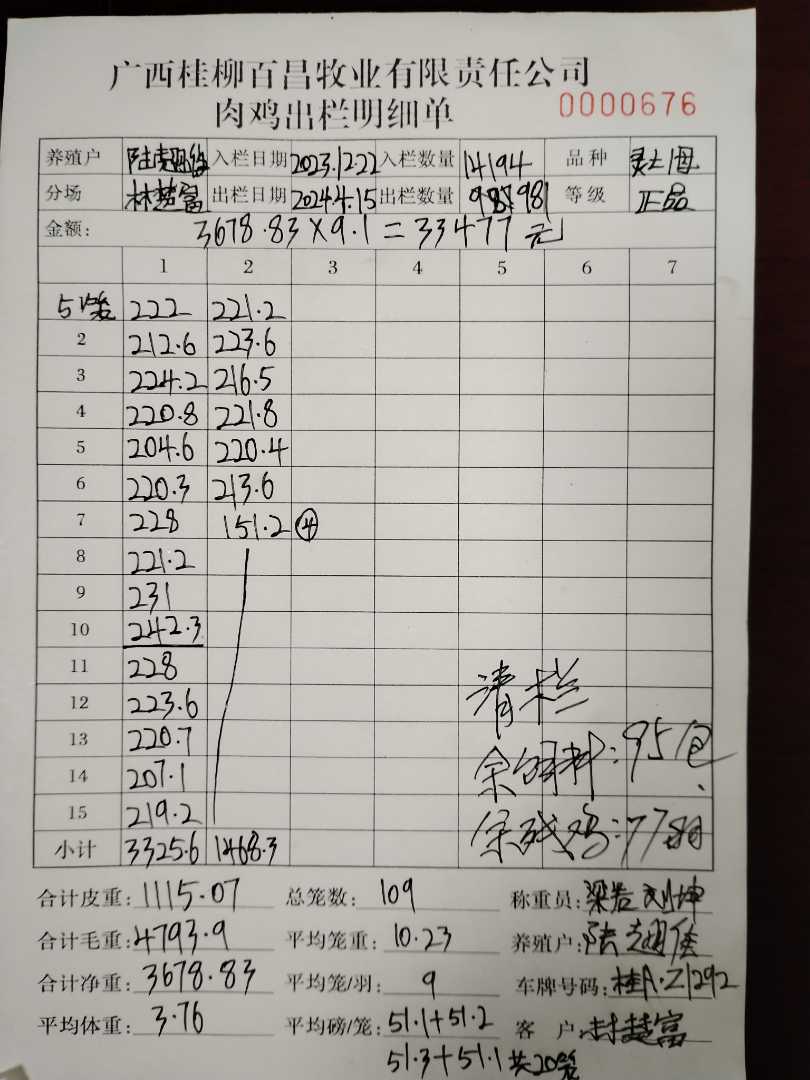 广西桂柳百昌牧业有限责任公司
肉鸡出栏明细单 0000676
养殖户 入栏日期 2023.12.22 入栏数量 14194 品种 灵土母
分场 林楚富 出栏日期 2024.4.15 出栏数量 981 等级 正品
金额: 3678.83×9.1=33477元
1 2 3 4 5 6 7
5笼 222 221.2
2 212.6 223.6
3 224.2 216.5
4 220.8 221.8
5 204.6 220.4
6 220.3 213.6
7 228 151.2 ④
8 221.2
9 231
10 242.3
11 228
12 223.6
13 220.7
14 207.1
15 219.2
小计 3325.6 1468.3
清栏
余饲料:95包
余残鸡:77羽
合计皮重:1115.07 总笼数:109 称重员:梁岩 刘坤
合计毛重:4793.9 平均笼重:10.23 养殖户:陆
合计净重:3678.83 平均笼/羽:9 车牌号码:桂A·Z1292
平均体重:3.76 平均磅/笼:51.1+51.2 客户:林楚富
51.3+51.1 共20笼